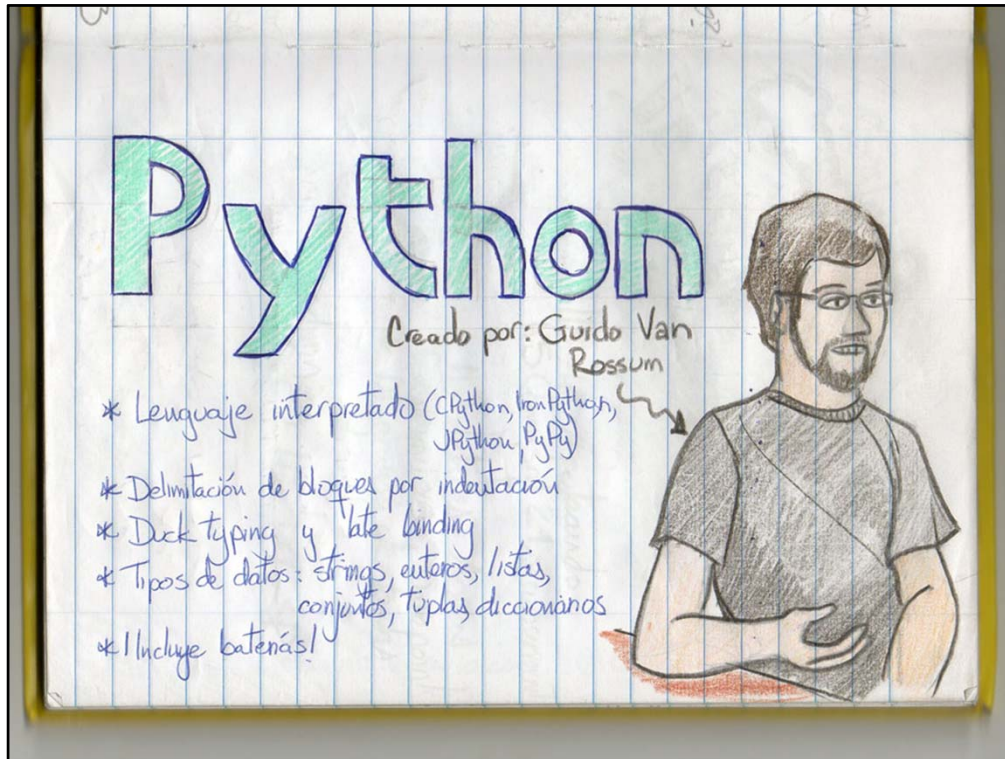 Python
Creado por: Guido Van
Rossum
* Lenguaje interpretado (CPython, IronPython,
JPython, PyPy)
* Delimitación de bloques por indentación
* Duck typing y late binding
* Tipos de datos: strings, enteros, listas,
conjuntos, tuplas, diccionarios
* ¡Incluye baterías!